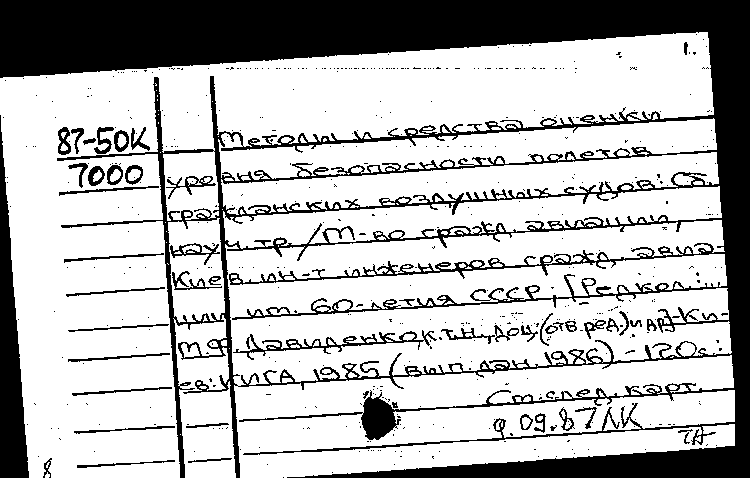 1.
87-50К
7000
Методы и средства оценки
уровня безопасности полетов
гражданских воздушных судов: Сб.
науч. тр. / М-во гражд. авиации,
Киев. ин-т инженеров гражд. авиа-
ции им. 60-летия СССР; [Редкол.: ...
М.Ф. Давиденко к.т.н., доц. (отв. ред.) и др.]-Ки-
ев: КИГА, 1985 (вып. дан. 1986). - 120с.:
См. след. карт.
09.87 ЛК
8